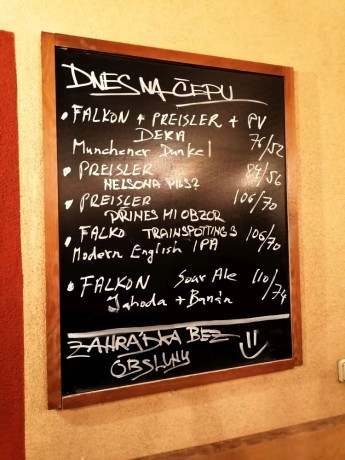 DNES NA ČEPU
• FALKON + PREISLER + PV
DEKA 76/52
Munchener Dunkel
• PREISLER 84/56
NELSONA PILSZ
• PREISLER 106/70
DRINES MI OBZOR
• FALKO TRAINSPOTTING 3 106/70
Modern English IPA
• FALKON Soar Ale 110/74
Jahoda + Banán
ZAHRÁDKA BEZ
OBSLUHY